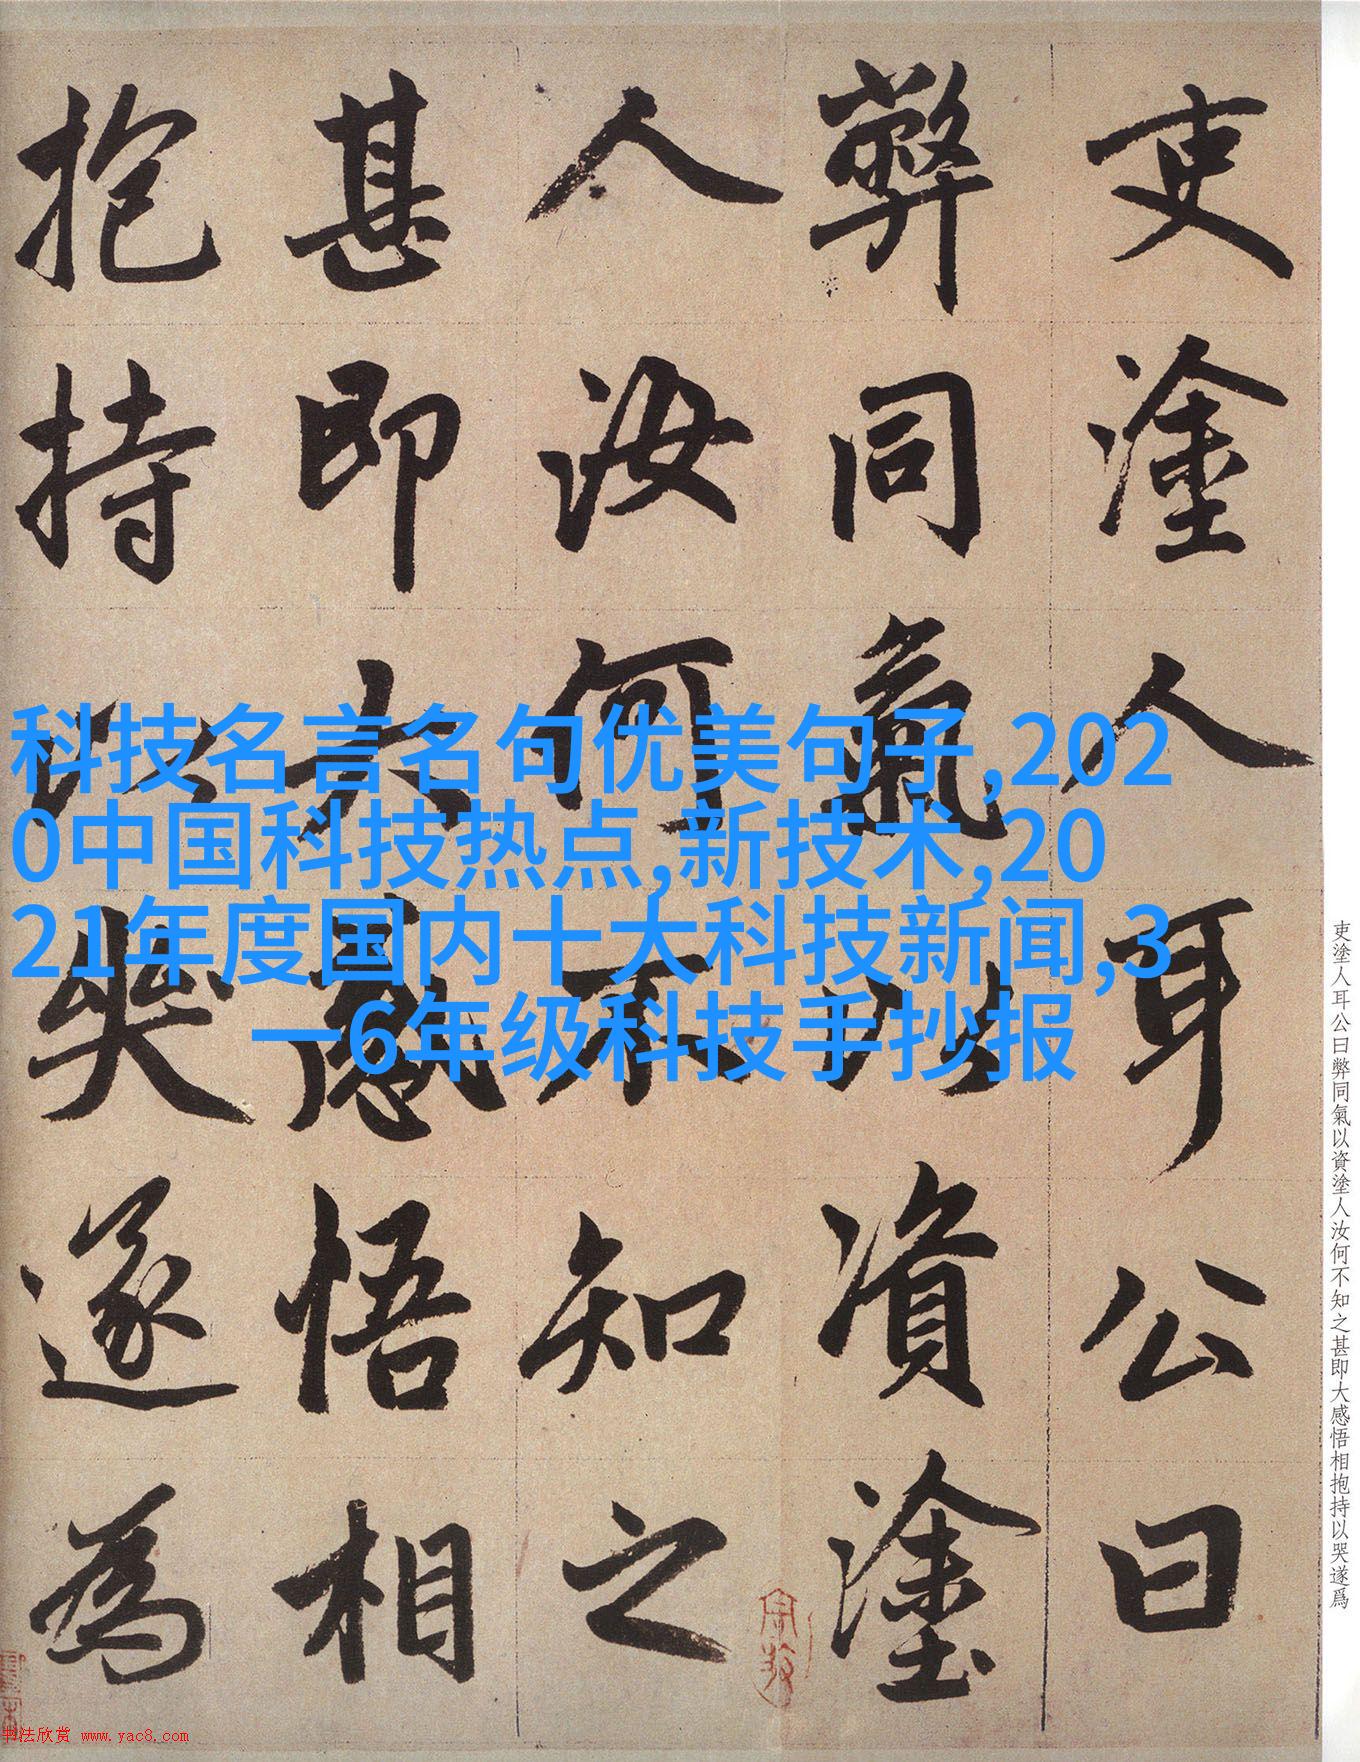 科技名言名句优美句子,202
0中国科技热点,新技术,20
21年度国内十大科技新闻,3
一6年级科技手抄报
吏塗人耳公曰
弊同氣以資塗
人汝何不知之
甚即大感悟相
抱持以哭遂為
吏塗人耳公曰弊同氣以資塗人汝何不知之甚即大感悟相抱持以哭遂爲
书法欣赏 www.yac8.com